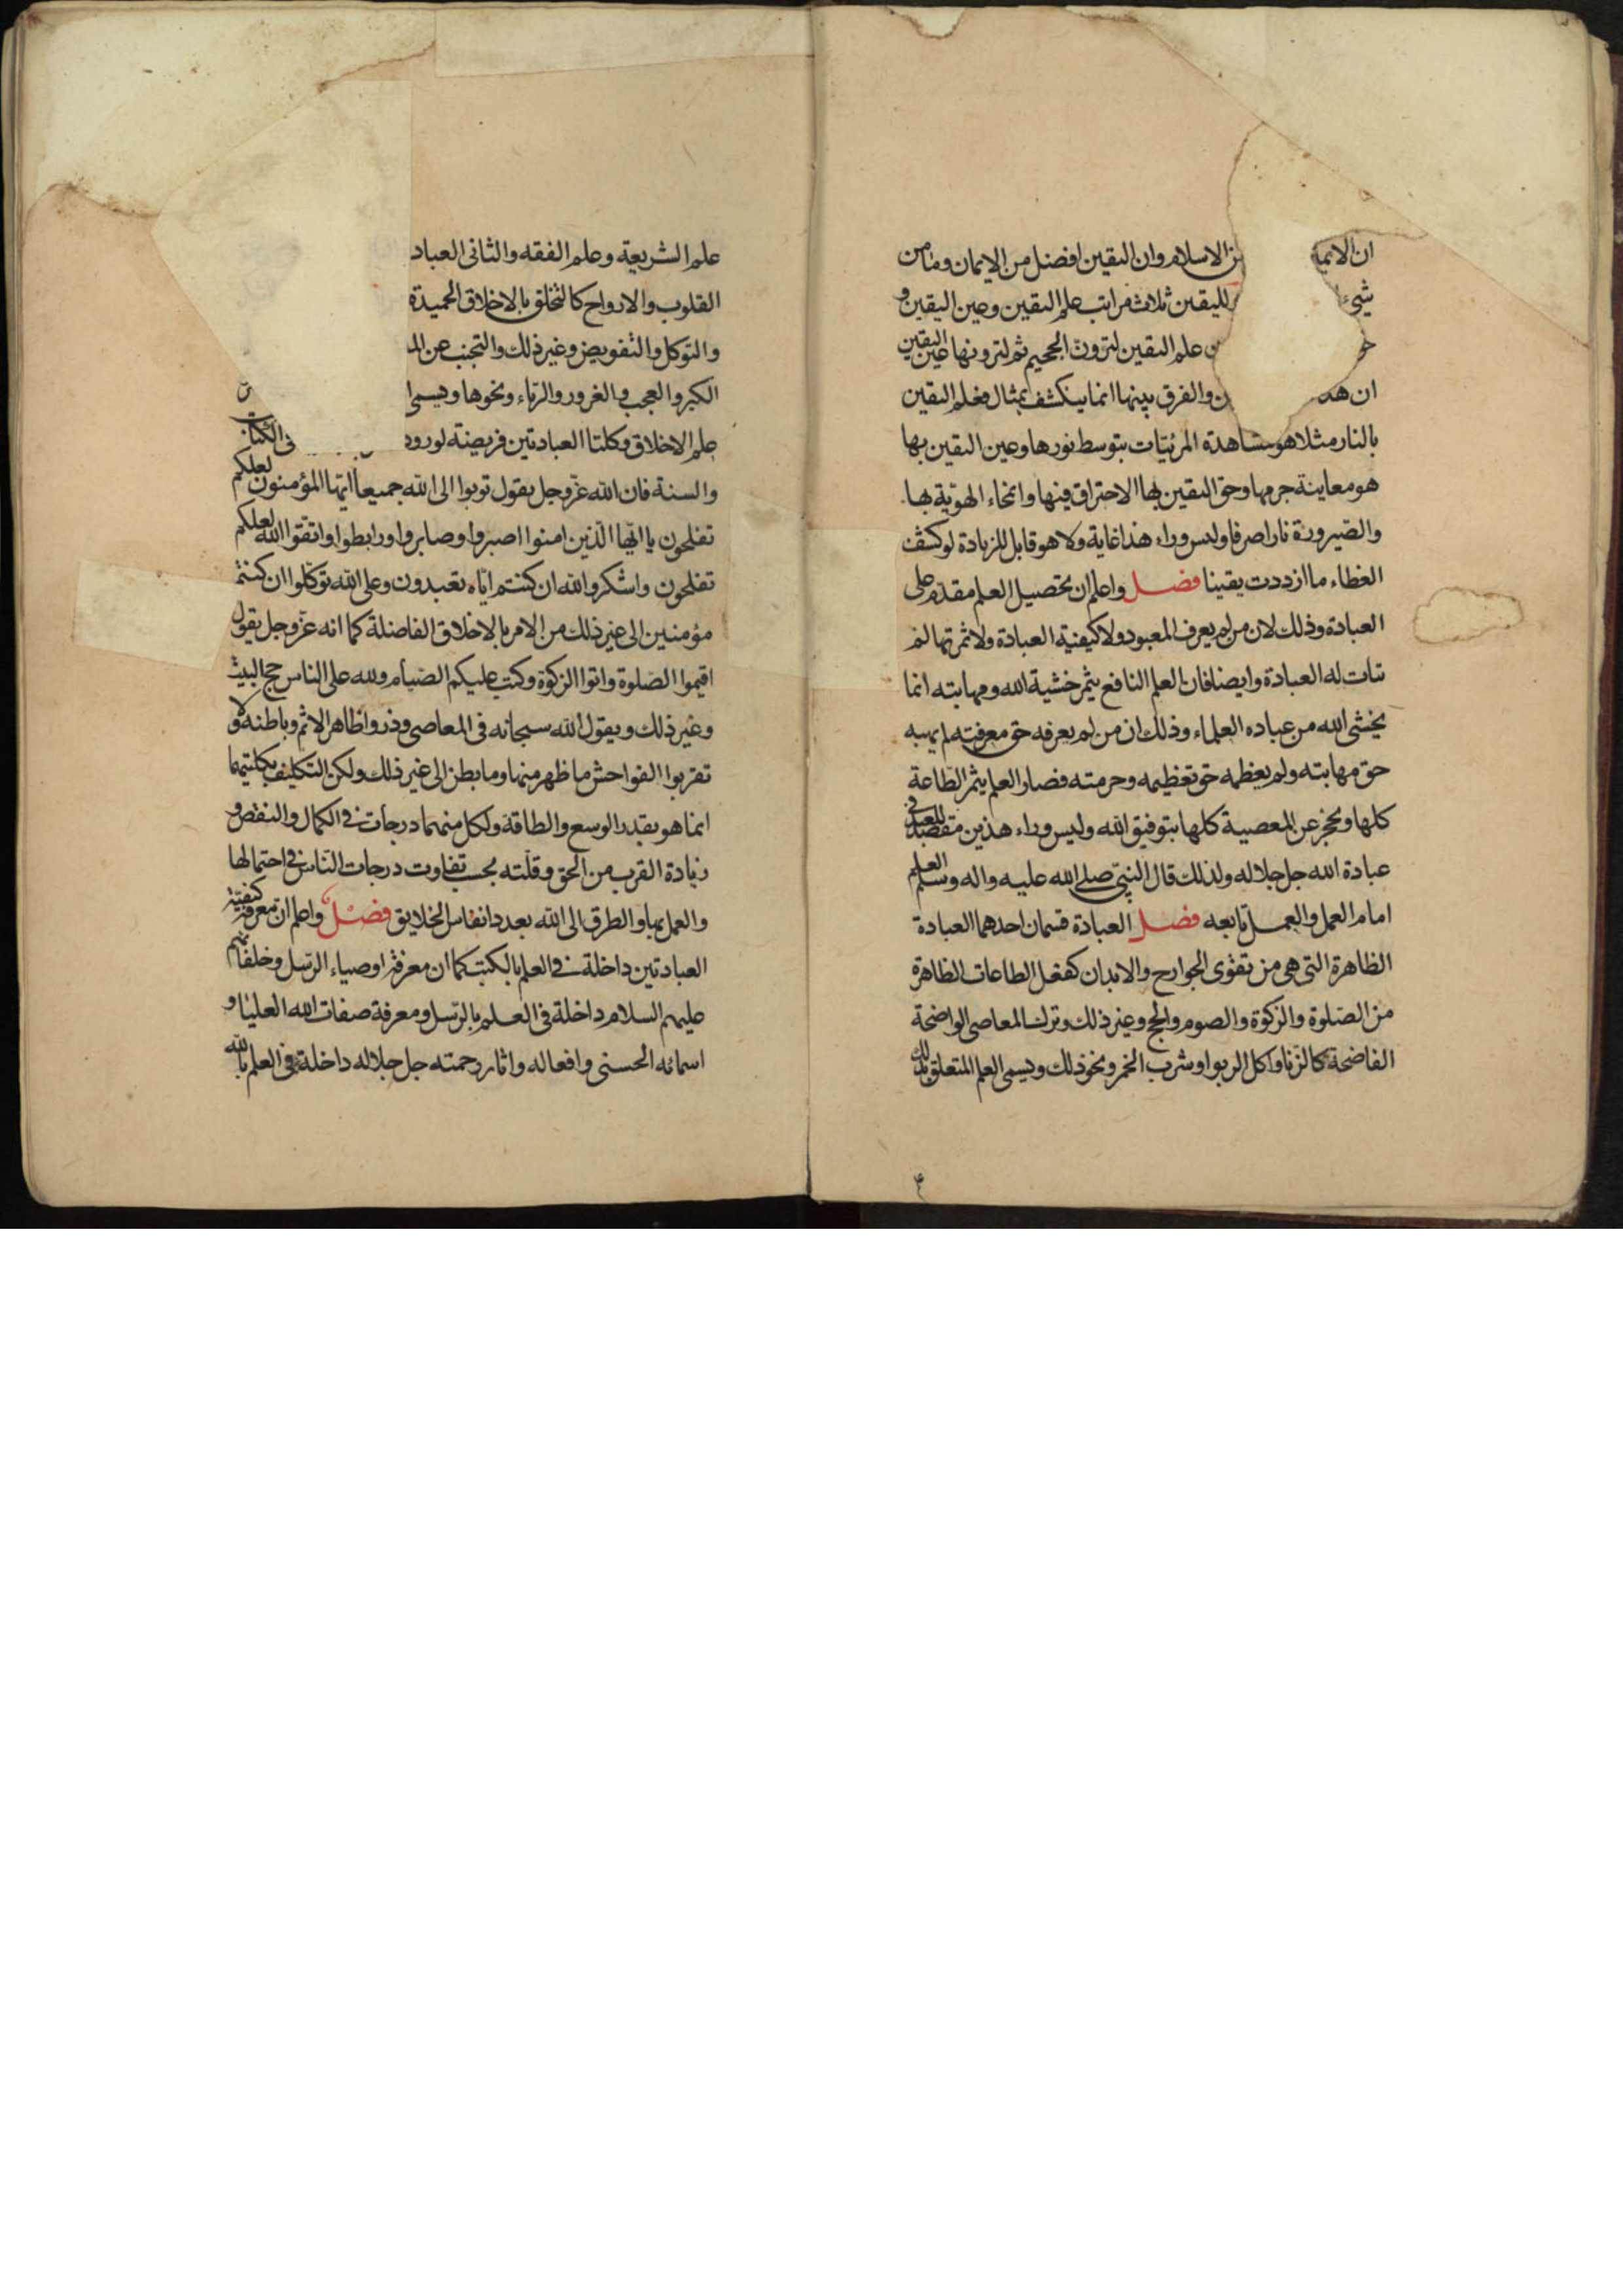 ان الايما من الاسلام وان اليقين افضل من الايمان وما من
شيء لليقين ثلاث مراتب علم اليقين وعين اليقين و
علم اليقين لترون الجحيم ثم لترونها عين اليقين
ان هذ والفرق بينها انما ينكشف بمثال فعلم اليقين
بالنار مثلا هو مشاهدة المرئيات بتوسط نورها وعين اليقين بها
هو معاينة جرمها وحق اليقين بها الاحتراق فيها وانمحاء الهوية بها
والصيرورة نارا صرفا وليس وراء هذا غاية ولا هو قابل للزيادة لو كشف
الغطاء ما ازددت يقينا فصل واعلم ان تحصيل العلم مقدم على
العبادة وذلك لان من لم يعرف المعبود ولا كيفية العبادة ولا ثمرتها لم
تتات له العبادة وايضا فان العلم النافع يثمر خشية الله ومهابته انما
يخشى الله من عباده العلماء وذلك ان من لم يعرفه حق معرفته لم يهبه
حق مهابته ولم يعظمه حق تعظيمه وحرمته فصار العلم يثمر الطاعة
كلها ويحجز عن المعصية كلها بتوفيق الله وليس وراء هذين مقصد للعبد في
عبادة الله جل جلاله ولذلك قال النبي صلى الله عليه واله وسلم العلم
امام العمل والعمل تابعه فصل العبادة قسمان احدهما العبادة
الظاهرة التي هي من تقوى الجوارح والابدان كفعل الطاعات الظاهرة
من الصلوة والزكوة والصوم والحج وغير ذلك وترك المعاصي الواضحة
الفاضحة كالزنا واكل الربوا وشرب الخمر ونحو ذلك ويسمى العلم المتعلق بذلك
علم الشريعة وعلم الفقه والثاني العباد
القلوب والارواح كالتخلق بالاخلاق الحميدة
والتوكل والتفويض وغير ذلك والتجنب عن الم
الكبر والعجب والغرور والرياء ونحوها ويسمى ا
علم الاخلاق وكلتا العبادتين فريضة لورود في الكتاب
والسنة فان الله عز وجل يقول توبوا الى الله جميعا ايها المؤمنون لعلكم
تفلحون يا ايها الذين امنوا اصبروا وصابروا ورابطوا واتقوا الله لعلكم
تفلحون واشكروا الله ان كنتم اياه تعبدون وعلى الله توكلوا ان كنتم
مؤمنين الى غير ذلك من الامر بالاخلاق الفاضلة كما انه عز وجل يقول
اقيموا الصلوة واتوا الزكوة وكتب عليكم الصيام ولله على الناس حج البيت
وغير ذلك ويقول الله سبحانه في المعاصي وذروا ظاهر الاثم وباطنه ولا
تقربوا الفواحش ما ظهر منها وما بطن الى غير ذلك ولكن التكليف بكلتيهما
انما هو بقدر الوسع والطاقة ولكل منهما درجات في الكمال والنقص و
زيادة القرب من الحق وقلته بحسب تفاوت درجات الناس في احتمالها
والعمل بها والطرق الى الله بعدد انفاس الخلايق فصل واعلم ان معرفة كيفية
العبادتين داخلة في العلم بالكتب كما ان معرفة اوصياء الرسل وخلفائهم
عليهم السلام داخلة في العلم بالرسل ومعرفة صفات الله العليا و
اسمائه الحسنى وافعاله واثار رحمته جل جلاله داخلة في العلم بالله
۴